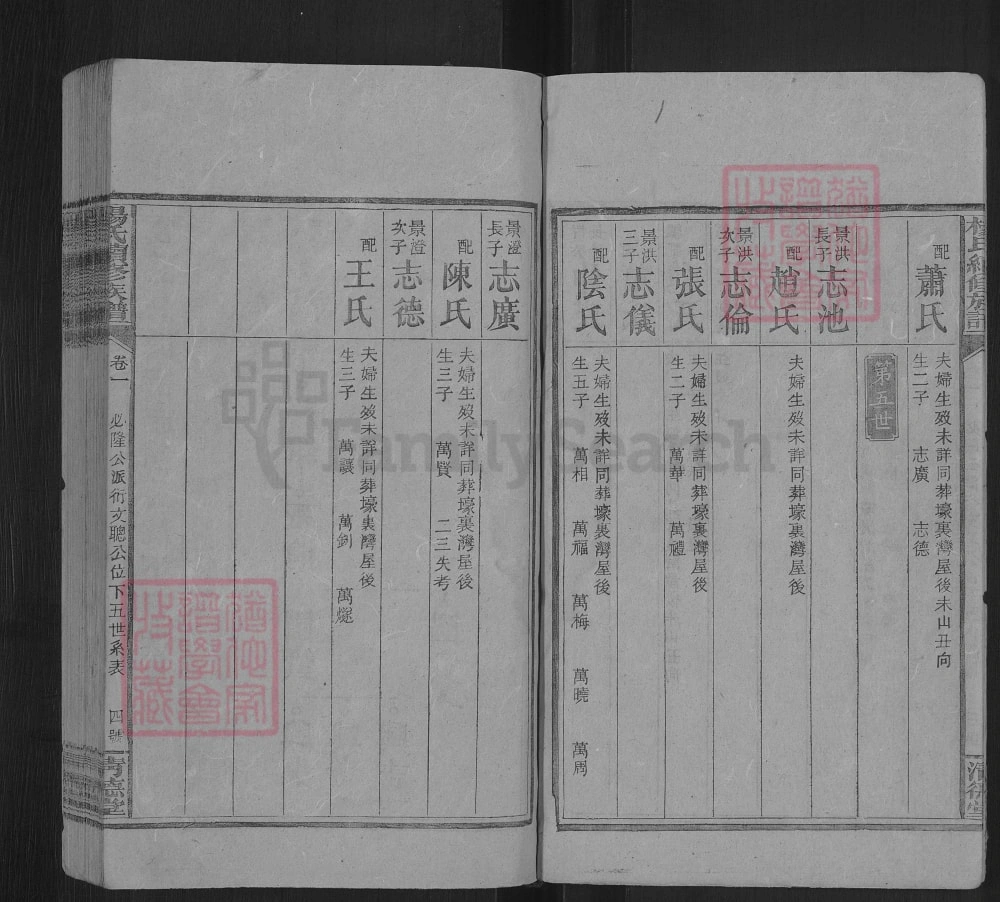 配 蕭氏
夫婦生歿未詳同葬壕裏灣屋後未山丑向
生二子 志廣 志德
第五世
景洪長子 志池
配 趙氏
夫婦生歿未詳同葬壕裏灣屋後
景洪次子 志倫
配 張氏
夫婦生歿未詳同葬壕裏灣屋後
生二子 萬華 萬禮
景洪三子 志儀
配 陰氏
夫婦生歿未詳同葬壕裏灣屋後
生五子 萬相 萬福 萬梅 萬曉 萬周
景澄長子 志廣
配 陳氏
夫婦生歿未詳同葬壕裏灣屋後
生三子 萬賢 二三失考
景澄次子 志德
配 王氏
夫婦生歿未詳同葬壕裏灣屋後
生三子 萬讓 萬釗
楊氏續修族譜
卷一 必隆公派衍文聰公位下五世系表 四號
清德堂
FamilySearch
猶他家譜學會收藏